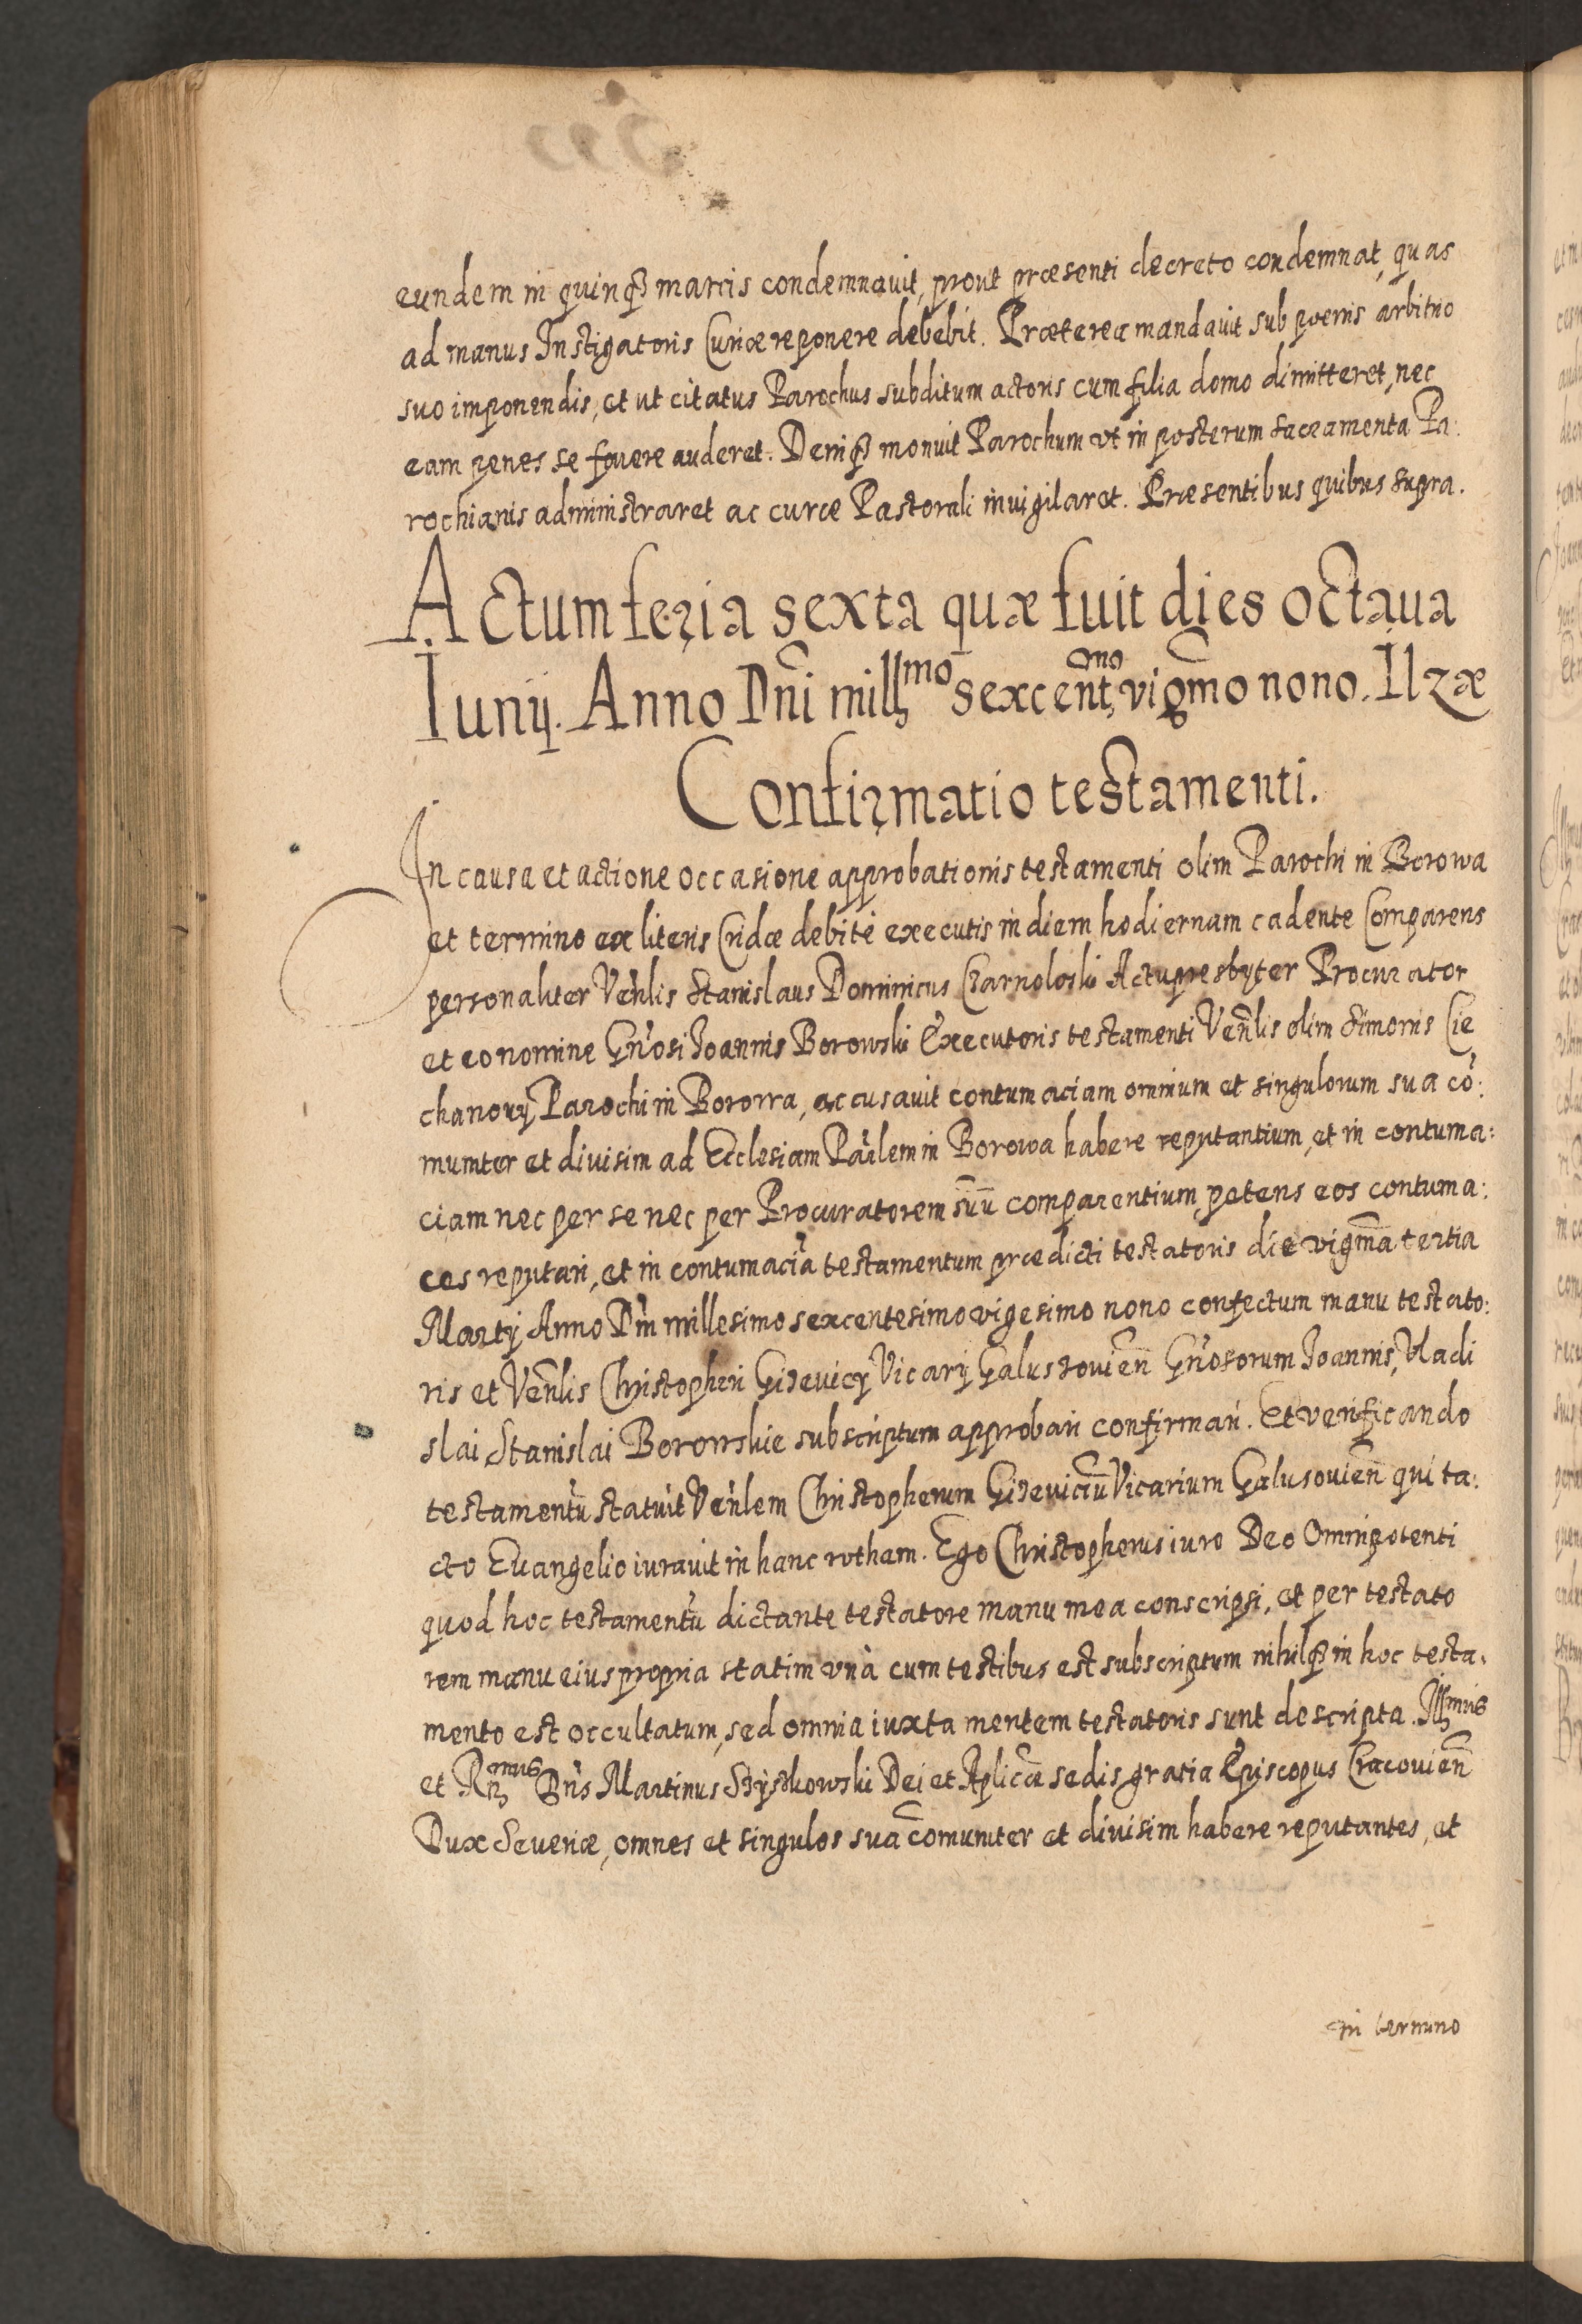 eundem in quinqȝ marcis condemnauit, prout præsenti decreto condemnat, quas
ad manus Instigatoris Curiæ reponere debebit. Præterea mandauit sub poenis arbitrio
suo imponendis, et ut citatus Parochus subditum actoris cum filia domo dimitteret, nec
eam penes se fouere auderet. Deniqȝ monuit Parochum vt in posterum sacramenta Pa:
rochianis administraret ac curæ Pastorali inuigilaret. Præsentibus quibus supra.
Actum feria sexta quæ fuit dies octaua
Iunij. Anno Dñi millmo sexcentmo vigmo nono. Ilzæ
Confirmatio testamenti.
In causa et actione occasione approbationis testamenti olim Parochi in Borowa
et termino ex literis Cridæ debitè executis in diem hodiernam cadente Comparens
personaliter Venlis Stanislaus Dominicus Czarnoloski Actupresbyter Procurator
et eo nomine Gnosi Joannis Borowski Executoris testamenti Venlis olim Simonis Cie
chanowy Parochi in Borowa, accusauit contumaciam omnium et singulorum sua cõ:
muniter et diuisim ad Ecclesiam Parlem in Borowa habere reputantium, et in contuma:
ciam nec per se nec per Procuratorem suũ comparentium, petens eos contuma:
ces reputari, et in contumaciã testamentum prædicti testatoris die vigma tertia
Martij Anno Dñi millesimo sexcentesimo vigesimo nono confectum manu testato:
ris et Venlis Christopheri Gizevicy Vicarij Galuszovieñ Gnosorum Joannis, Vladi
slai Stanislai Borowskie subscriptum approbari confirmari. Et verificando
testamentũ statuit Venlem Christopherum Gizeviciũ Vicarium Galusovieñ qui ta:
cto Euangelio iurauit in hanc rotham. Ego Christopherus iuro Deo Omnipotenti
quod hoc testamentũ dictante testatore manu mea conscripsi, et per testato
rem manu eius propria statim vnà cum testibus est subscriptum nihilqȝ in hoc testa.
mento est occultatum, sed omnia iuxta mentem testatoris sunt descripta. Illmus
et Rmus Dñs Martinus Szyszkowski Dei et Aplicæ sedis gratia Episcopus Cracouieñ
Dux Seueriæ, omnes et singulos sua comuniter et diuisim habere reputantes, et
in termino